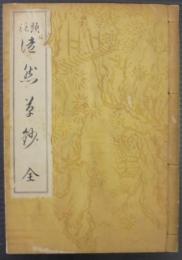 頭註
徒然草鈔 全